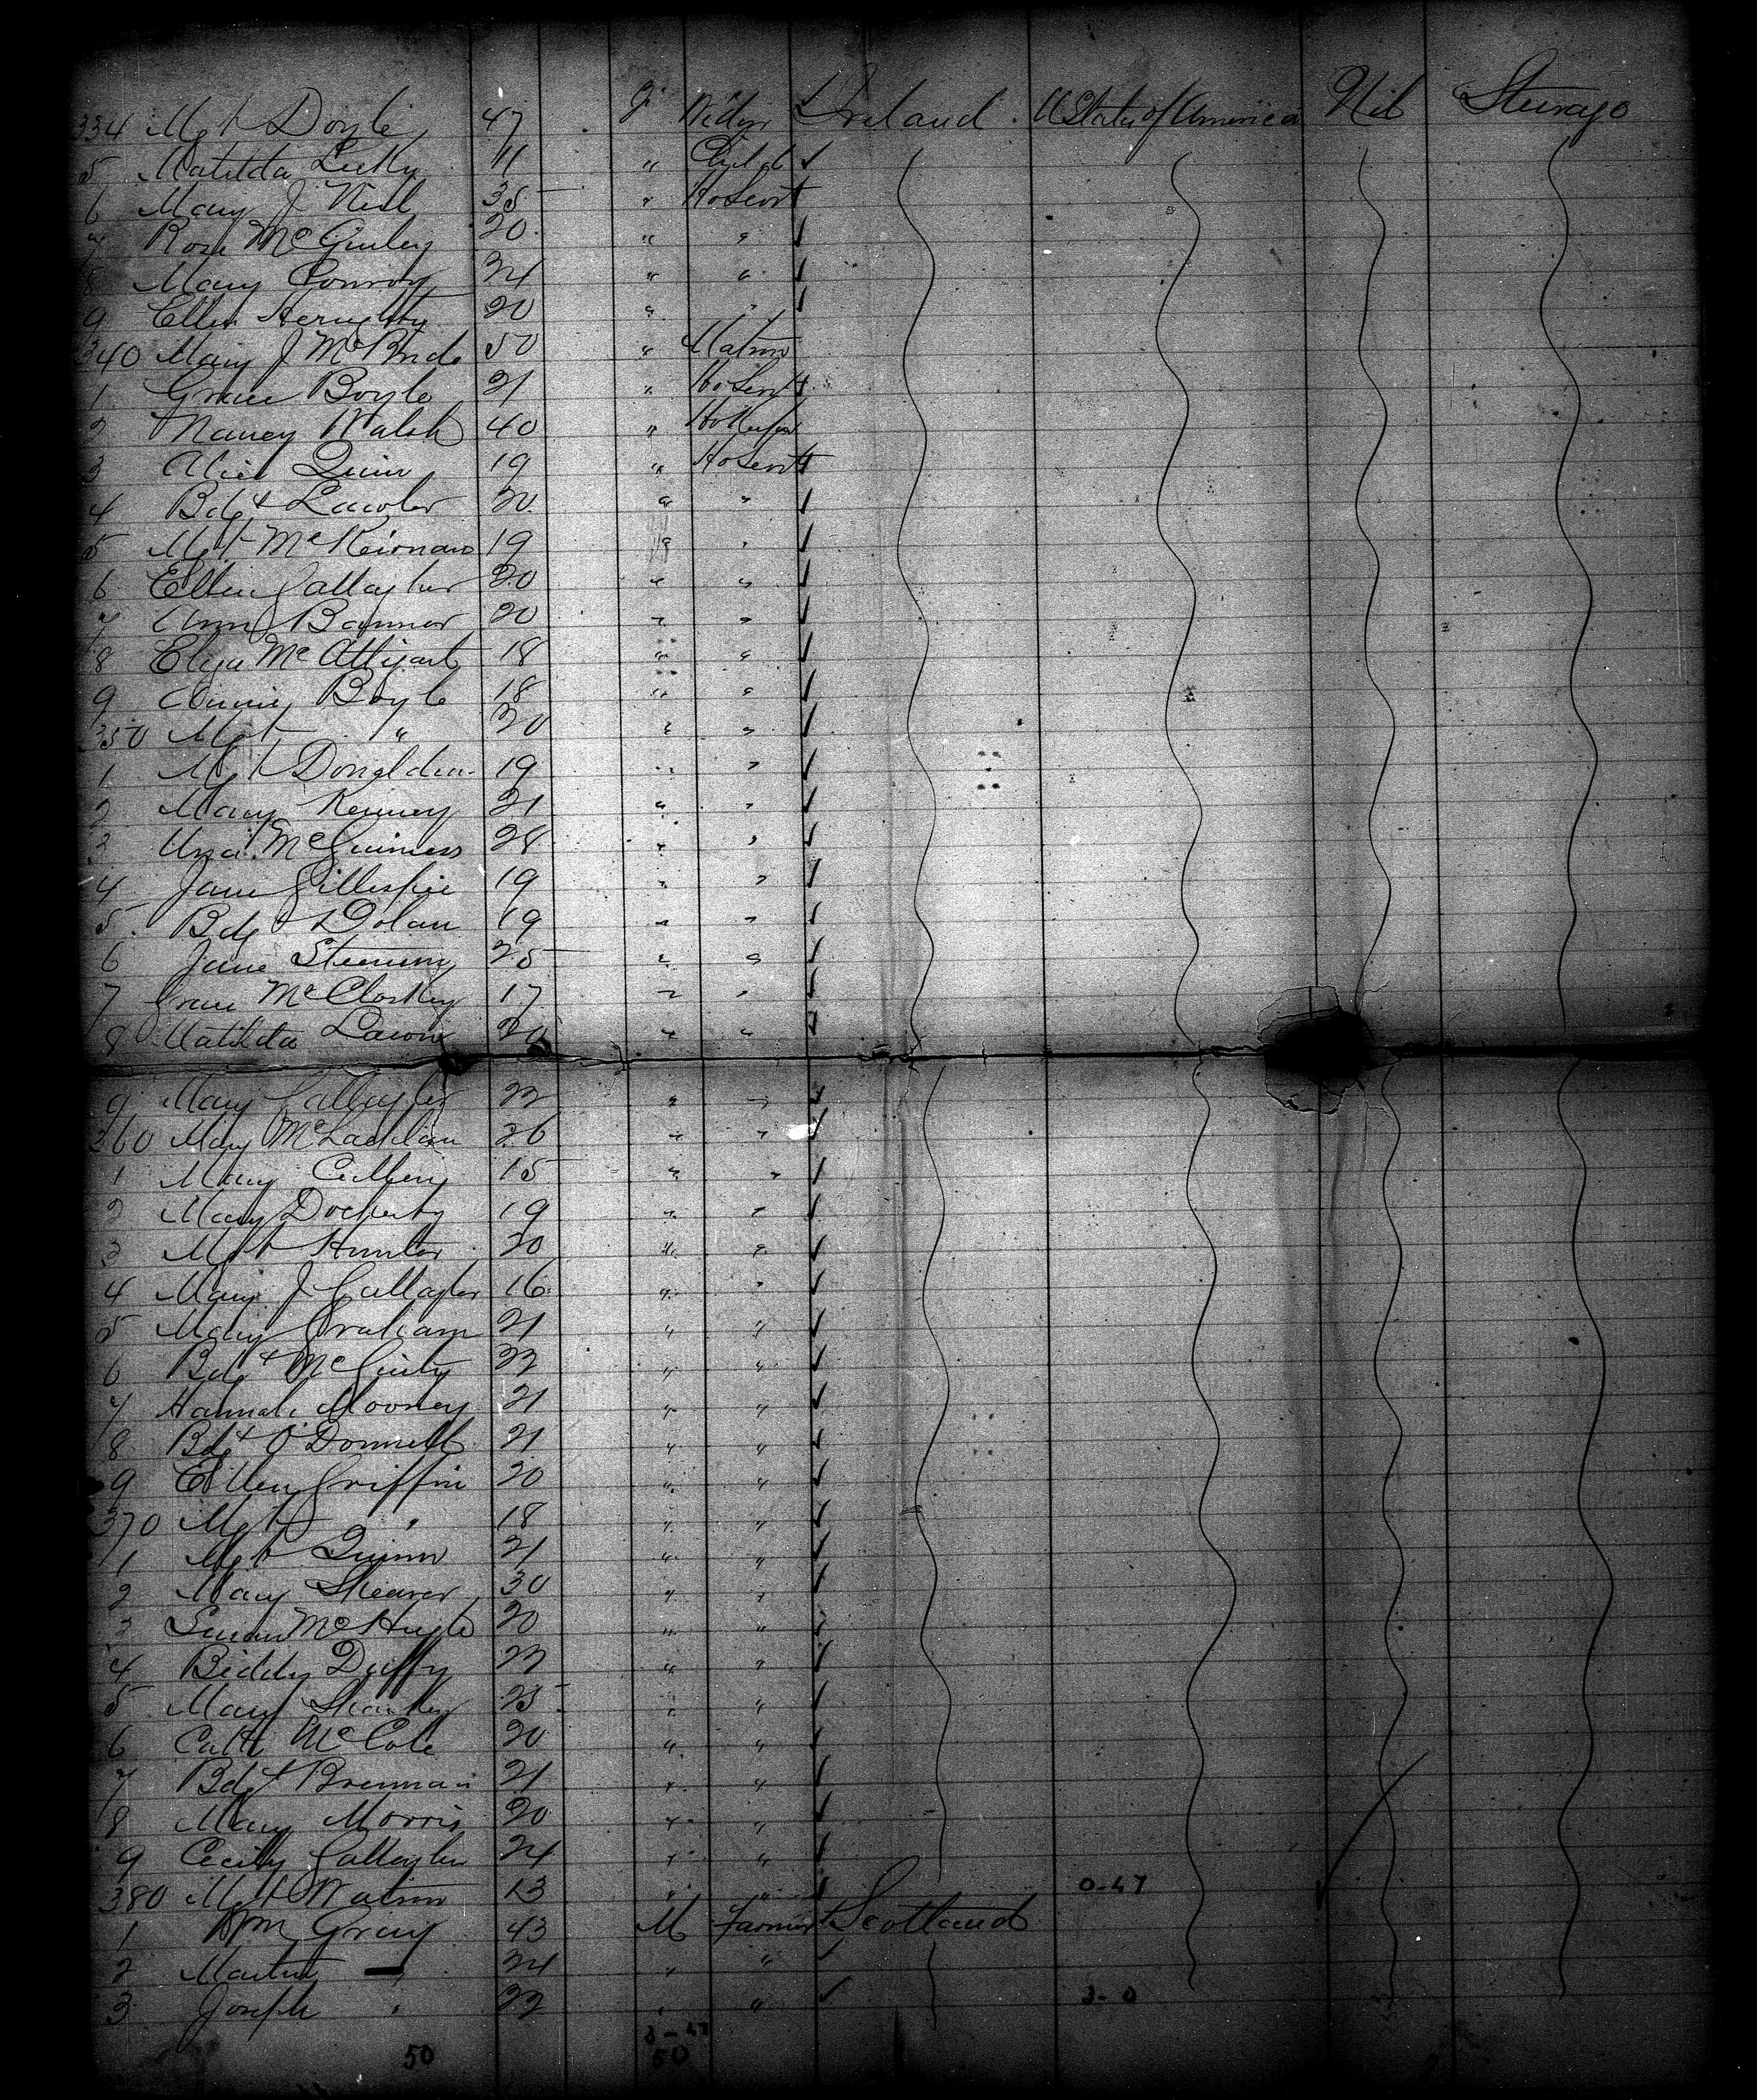 334 Mgt Doyle 47 F Widow Ireland U States of America Nil Steerage
5 Matilda Lecky 11 " Child
6 Mary J Neil 35 " Ho Servt
7 Rose McGinley 20 " "
8 Mary Conroy 24 " "
9 Ellen Heraghty 20 " "
340 Mary J McBride 50 " Matron
1 Grace Boyle 21 " Ho Servt
2 Nancy Walsh 40 " Ho Keeper
3 Alice Quinn 19 " Ho Servt
4 Bdgt Lawler 20 " "
5 Mgt McKeirnan 19 " "
6 Ellen Gallagher 20 " "
7 Ann 20 " "
8 Eliza 18 " "
9 Annie Boyle 18 " "
350 Mgt " 20 " "
1 Mgt Donaldson 19 " "
2 Mary Kenney 21 " "
3 McGuiness 28 " "
4 Jane Gillespie 19 " "
5 Bdgt Dolan 19 " "
6 Jane 25 " "
7 Grace McCloskey 17 " "
8 Matilda 20 " "
9 Mary Gallagher 22 " "
360 Mary McLachlan 26 " "
1 Mary Cullen 15 " "
2 Mary Docherty 19 " "
3 Mgt Hunter 20 " "
4 Mary J Gallagher 16 " "
5 Mary Graham 21 " "
6 Bdgt McGinty 22 " "
7 Hannah Mooney 21 " "
8 Bdgt O'Donnell 21 " "
9 Ellen Griffin 20 " "
370 Mgt " 18 " "
1 Mgt Quinn 21 " "
2 Mary Shearer 30 " "
3 Susan McHugh 20 " "
4 Biddy Duffy 22 " "
5 Mary 25 " "
6 Cath McCole 20 " "
7 Bdgt Brennan 21 " "
8 Mary Morris 20 " "
9 Cecily Gallagher 24 " "
380 Mgt Watson 13 " " 0-47
1 Wm Gray 43 M Farmer Scotland
2 Martin " 24 " "
3 Joseph " 22 " " 3-0
3-47
50 50